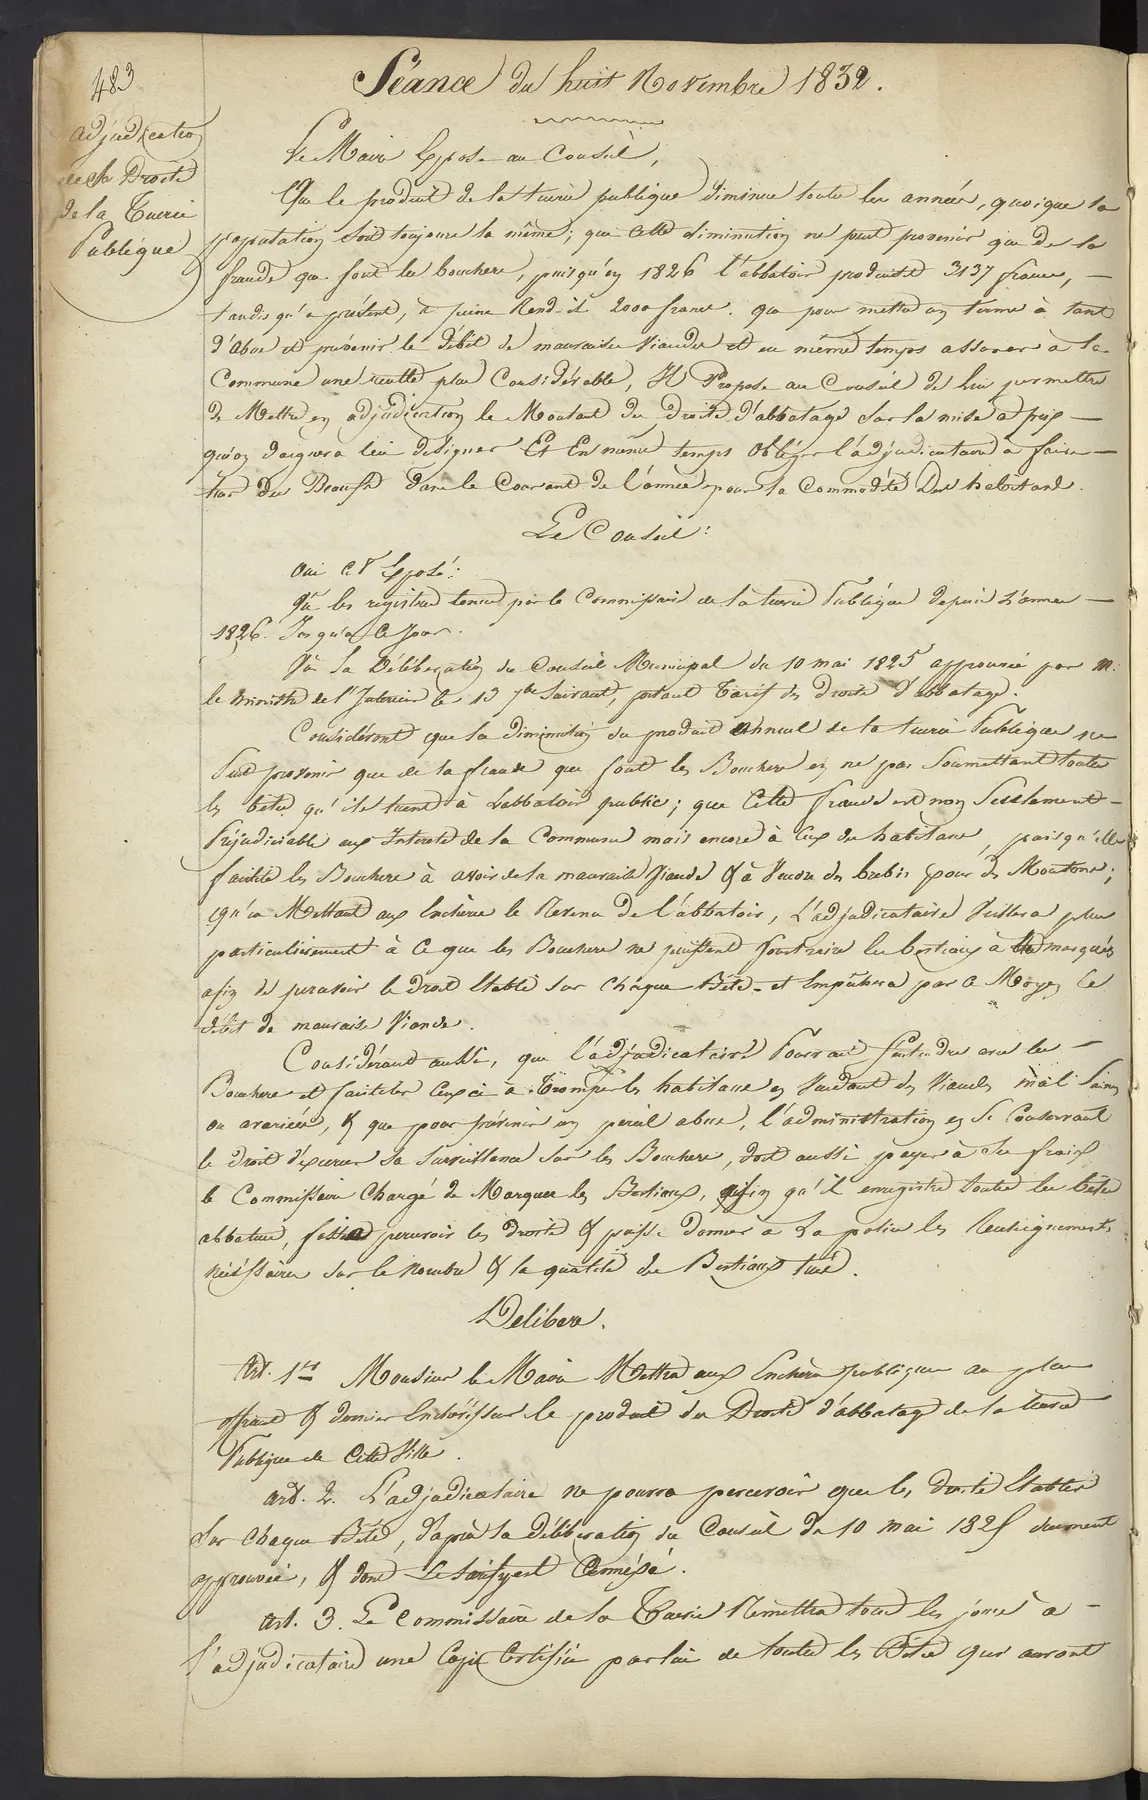 483
Séance du huit Novembre 1832.
adjudication
de la Droits
de la Tuerie
Publique
Le Maire Expose au Conseil,
Que le produit de la tuerie publique diminue toutes les années, quoique la
population soit toujours la même; que cette diminution ne peut provenir que de la
fraude que font les bouchers, puisqu'en 1826 l'abbatoir produisit 3137 francs, —
tandis qu'a présent, à peine Rend-il 2000 francs. que pour mettre un terme à tant
d'abus et prévenir le débit de mauvaises Viandes et en même temps assurer à la
Commune une recette plus Considérable, Il Propose au Conseil de lui permettre
de Mettre en adjudication le Montant des droits d'abbatage sur la mise a prix —
qu'on daignera lui designer Et En même temps Obliger l'adjudicataire a faire —
tuer des Beoufs dans le Courant de l'année pour la Commodité Des habitans.
Le Conseil:
Oui cet Exposé:
Vu les registres tenus par le Commissaire de la tuerie Publique depuis L'année —
1826. Jusqu'a Ce Jour.
Vu La Délibération du Conseil Municipal du 10 mai 1825 approuvée par M.
le Ministre de l'Interieur le 13 7bre Suivant, portant Tarif des droits d'abbatage.
Considérant que la diminution du produit annuel de la tuerie Publique ne
Peut provenir que de la fraude que font les Bouchers en ne pas Soumettant toutes
les bêtes qu'ils tuent à L'abbatoir public; que Cette fraude est non Seulement —
Préjudiciable aux Interets de la Commune mais encore à Ceux des habitans, puisqu'elle
facilite les Bouchers à avoir de la mauvaise Viande & à Vendre des brebis pour des Moutons;
qu'en Mettant aux Enchères le Revenu de l'abbatoir, L'adjudicataire Veillera plus
particulièrement à Ce que les Bouchers ne puissent soustraire les bestiaux à la marque
afin de percevoir le droit Etabli sur chaque Bête et Empêchera par ce Moyen Le
débit de mauvaise Viande.
Considérant aussi, que l'adjudicataire Pourrait s'entendre avec les —
Bouchers et faciliter Ceux ci a Tromper les habitans en Vendant des Viandes mal Saines
ou avariées, & que pour prévenir un pareil abus, l'administration en Se Conservant
le droit d'exercer Sa Surveillance Sur les Bouchers, doit aussi payer à Ses fraix
le Commissaire Chargé de Marquer les Bestiaux, afin qu'il enregistre toutes les bêtes
abbatues, fasse percevoir les droits & puisse donner à La police les Renseignements
nécéssaires sur le nombre & la qualité des Bestiaux tués.
Délibere.
Art. 1er Monsieur le Maire Mettra aux Enchères publiques au plus
offrant & dernier Enchérisseur le produit des Droits d'abbatage de la tuerie
Publique de Cette Ville.
Art. 2. L'adjudicataire ne pourra percevoir que les droits Etablis
Sur chaque Bête, d'après la Délibération du Conseil du 10 mai 1825 duement
approuvée, & dont Le tarif est Annéxé.
Art. 3. Le Commissaire de la Tuerie Remettra tous les jours à —
l'adjudicataire une Copie Certifiée par lui de toutes les Bêtes qui auront